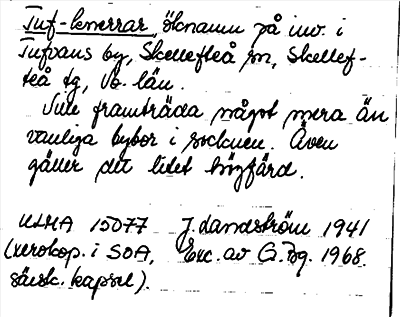 Tuf-knerrar, öknamn på inv. i
Tufvans by, Skellefteå sn, Skellef-
teå tg, Vb. län.
Ville framträda något mera än
vanliga bybor i socknen. Även
gäller det litet högfärd.
ULMA 15077 J. Landström 1941
(xerokop. i SOA, Exc. av G. Pg. 1968.
särsk. kapsel).